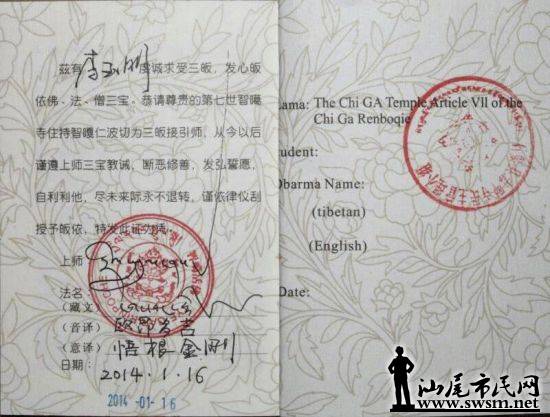 兹有李玉明虔诚求受三皈，发心皈
依佛、法、僧三宝。恭请尊贵的第七世智嘎
寺住持智嘎仁波切为三皈接引师，从今以后
谨遵上师三宝教诫，断恶修善，发弘誓愿，
自利利他，尽未来际永不退转，谨依律仪刮
授予皈依，特发此证为凭。
上师
法名
（藏文）
（音译）
（意译）悟根金刚
日期：2014.1.16
2014-01-16
Lama: The Chi GA Temple Article Vll of the
Chi Ga Renboqie
Student:
Dharma Name:
(tibetan)
(English)
Date:
汕尾市民网
www.swsm.net